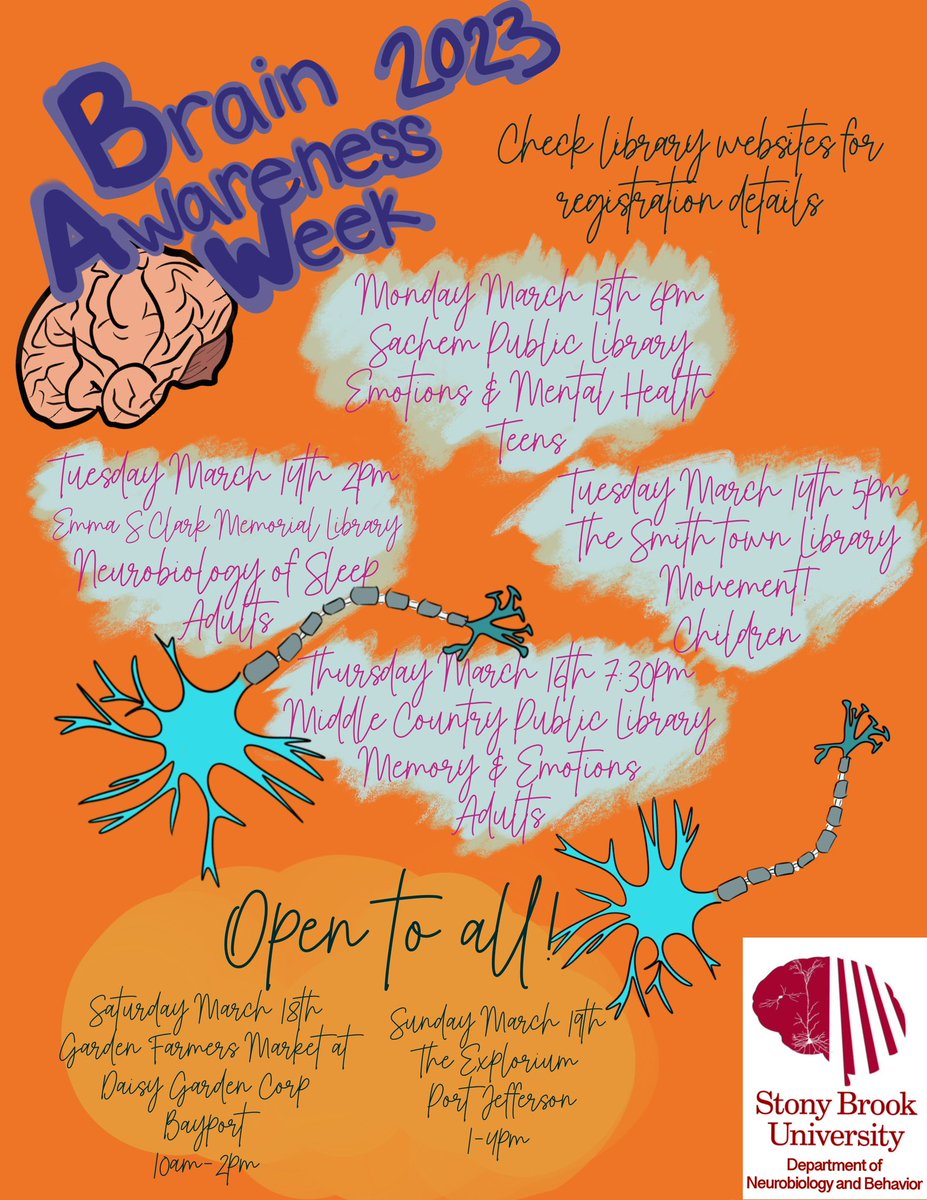 Brain 2023
Awareness
Week
Check library websites for
registration details
Monday March 13th 6pm
Sachem Public Library
Emotions & Mental Health
Teens
Tuesday March 14th 2pm
Emma S Clark Memorial Library
Neurobiology of Sleep
Adults
Tuesday March 14th 5pm
The Smith Town Library
Movement!
Children
Thursday March 16th 7:30pm
Middle Country Public Library
Memory & Emotions
Adults
Open to all!
Saturday March 18th
Garden Farmers Market at
Daisy Garden Corp
Bayport
10am-2pm
Sunday March 19th
The Explorium
Port Jefferson
1-4pm
Stony Brook
University
Department of
Neurobiology and Behavior